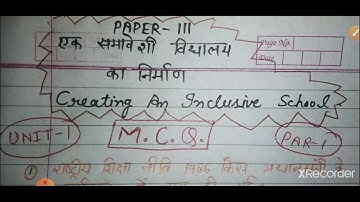 PAPER-III
एक समावेशी विद्यालय
Page No.
Date
का निर्माण
Creating An Inclusive School
UNIT-1
M.C.Q.
PAR-1
XRecorder
① राष्ट्रीय शिक्षा नीति 1986 किस प्रधानमंत्री के